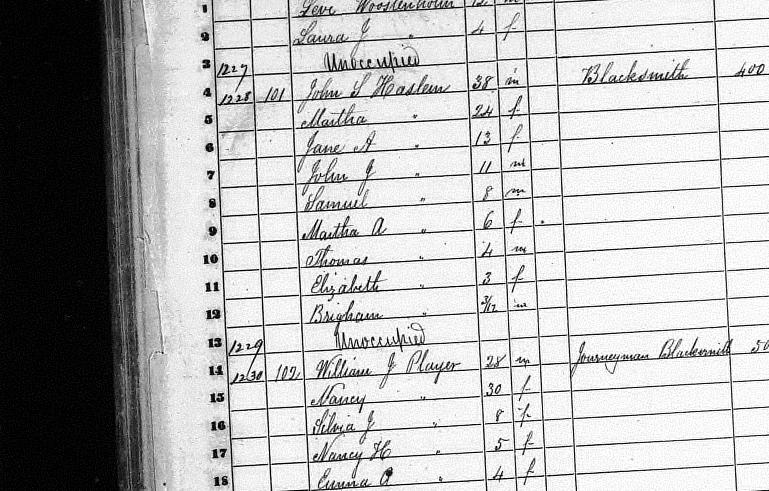 1 Levi Woostenholm 12 m
2 Laura J " 4 f
3 1227 Unoccupied
4 1228 101 John S Haslem 38 m Blacksmith 400
5 Martha " 24 f
6 Jane A " 13 f
7 John J " 11 m
8 Samuel " 8 m
9 Martha A " 6 f
10 Thomas " 4 m
11 Elizabeth " 3 f
12 Brigham " 3/12 m
13 1229 Unoccupied
14 1230 102 William J Player 28 m Journeyman Blacksmith 50
15 Nancy " 30 f
16 Silvia J " 8 f
17 Nancy H " 5 f
18 Emma A " 4 f